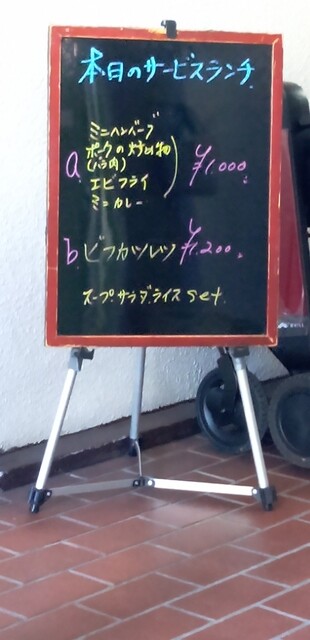 本日のサービスランチ
ミニハンバーグ
a ポークの炒め物 ¥1.000
(バラ肉)
エビフライ
ミニカレー
b ビフカツレツ ¥1.200
スープサラダライス set